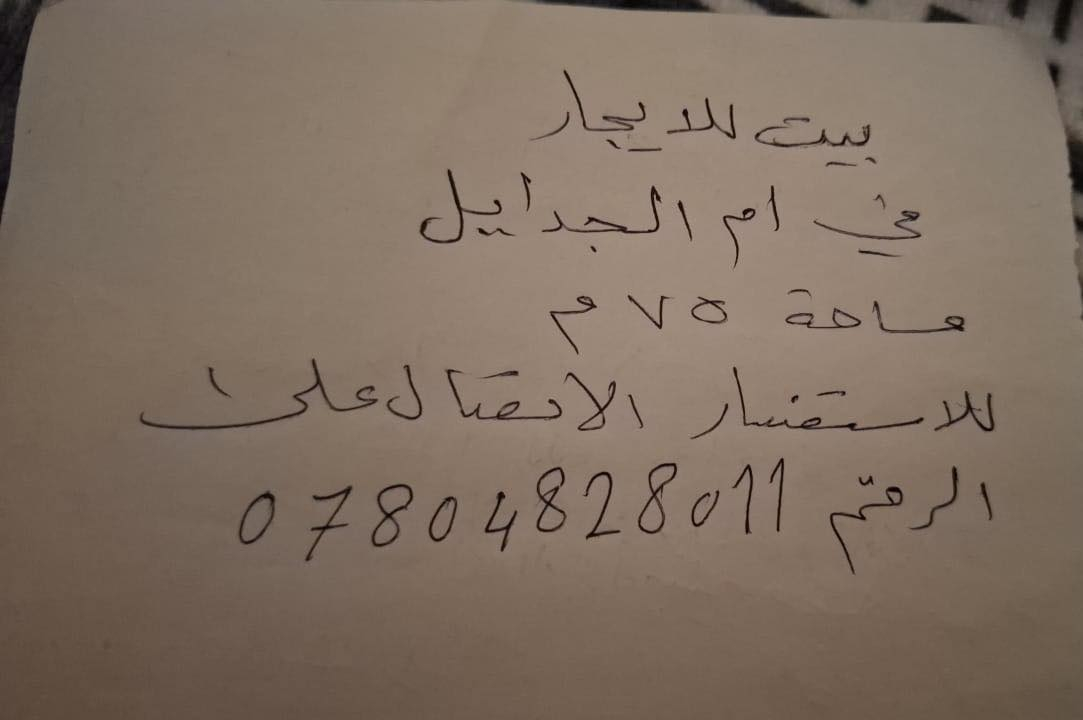 بيت للايجار
في ام الجدايل
مساحة ٧٥ م
للاستفسار الاتصال على
الرقم 07804828011